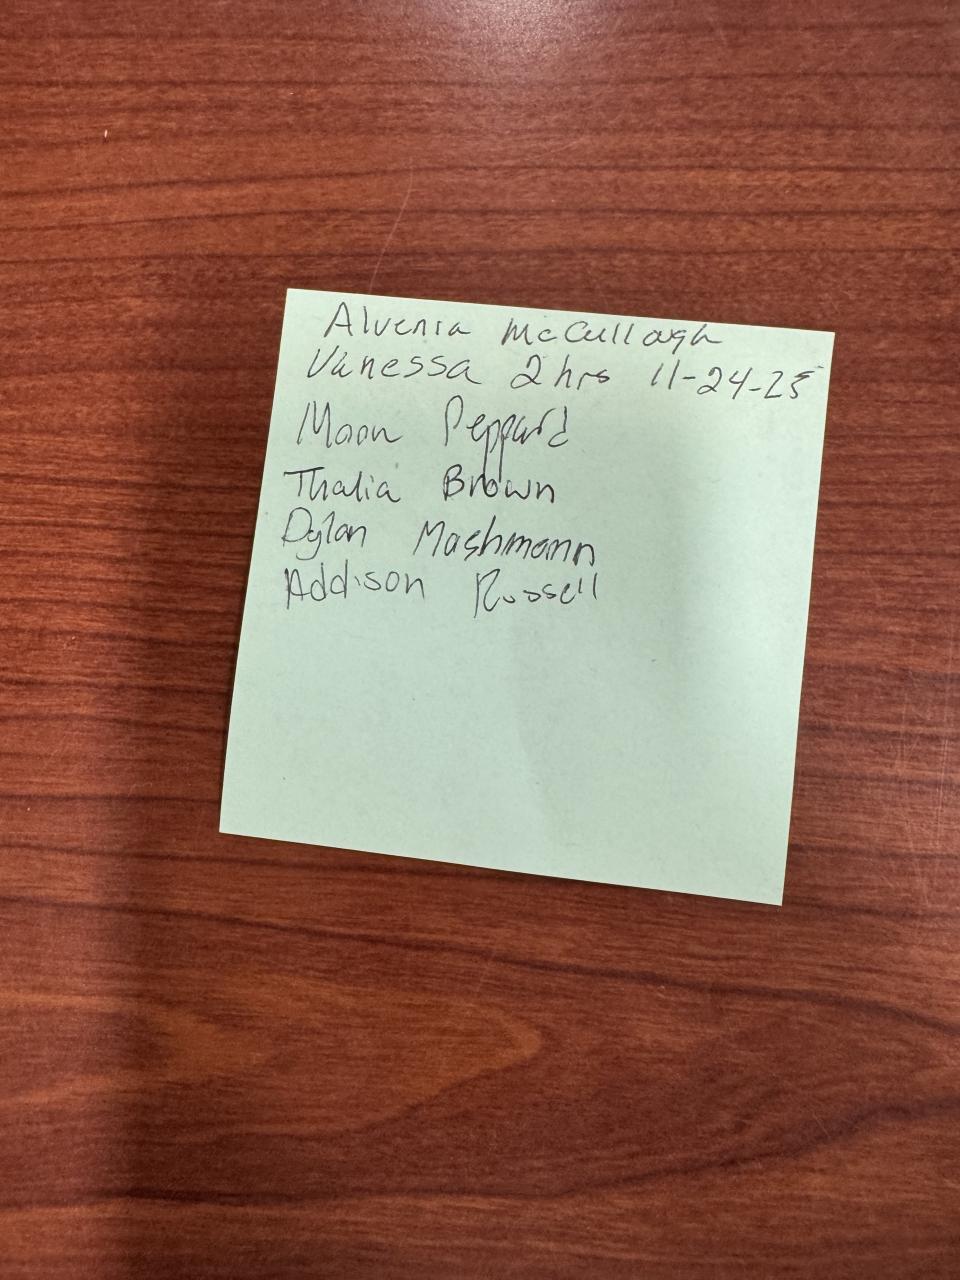 Alvenia McCullough
Vanessa 2hrs 11-24-25
Moon Peppard
Thalia Brown
Dylan Mashmann
Addison Russell